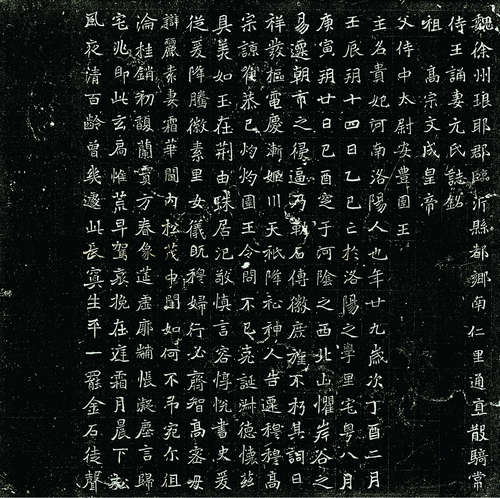 魏徐州琅耶郡臨沂縣都鄉南仁里通直散騎常
侍王誦妻元氏誌銘
祖高宗文成皇帝
父侍中太尉安豐圉王
主名貴妃河南洛陽人也年廿九歲次丁酉二月
壬辰朔十四日乙巳亡於洛陽之學里宅粵八月
庚寅朔廿日己酉窆于河陰之西北山懼岸谷之
易遷朝市之侵逼乃勒石傳徽庶旌不朽其詞曰
祥發樞電慶漸姬川天祇降祉神人告遷穆穆高
宗諒雅恭己灼灼圉王令問不已克誕淑德懷茲
具美如王在荊由蛛居汜敬慎言容惇悅書史爰
從爰降騰徽素里女儀既穆婦行必齊智高密母
辯麗袁妻霜華閨內松茂中閨如何不弔宛尔徂
淪桂銷初馥蘭實方春像筵虛廓黼帳凝塵言歸
宅兆即此玄扃幽荒早駕哀挽在庭霜月晨下寒
風夜清百齡曾幾邈此長冥生平一罷金石徒聲